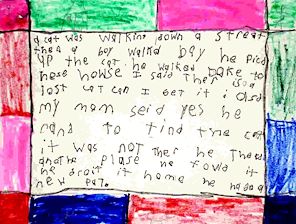 a cat was walking down a street
then a boy walkd bay he picd
up the cat he walked bake to
hese house I said ther is a
lost cat can I get it i olsd
my mom seid yes he
rand to find the cat
it was not ther he
anothe plase he fowd it
he broit it home he had a
new pat.